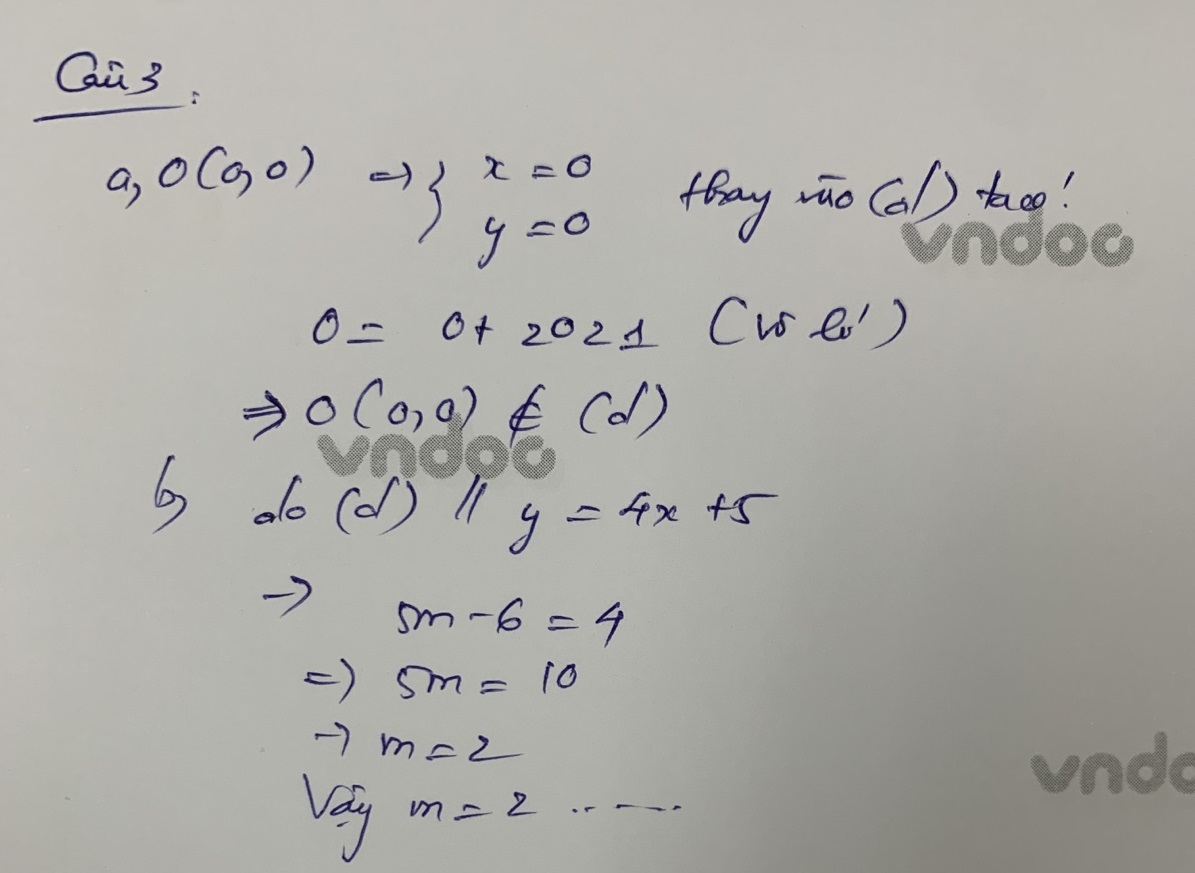 Câu 3.
a, O(0,0) => { x = 0
y = 0 thay vào (d) ta có!
vndoc
0 = 0 + 2021 (vô lí)
=> O(0,0) ∉ (d)
vndoc
b, do (d) // y = 4x + 5
-> 5m - 6 = 4
=> 5m = 10
-> m = 2
vndo
Vậy m = 2 .. ---..